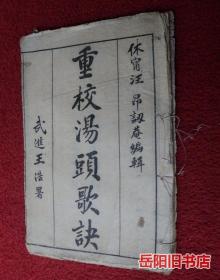 休甯汪昂訒菴編輯
重校湯頭歌訣
武進王浩署
岳阳旧书店